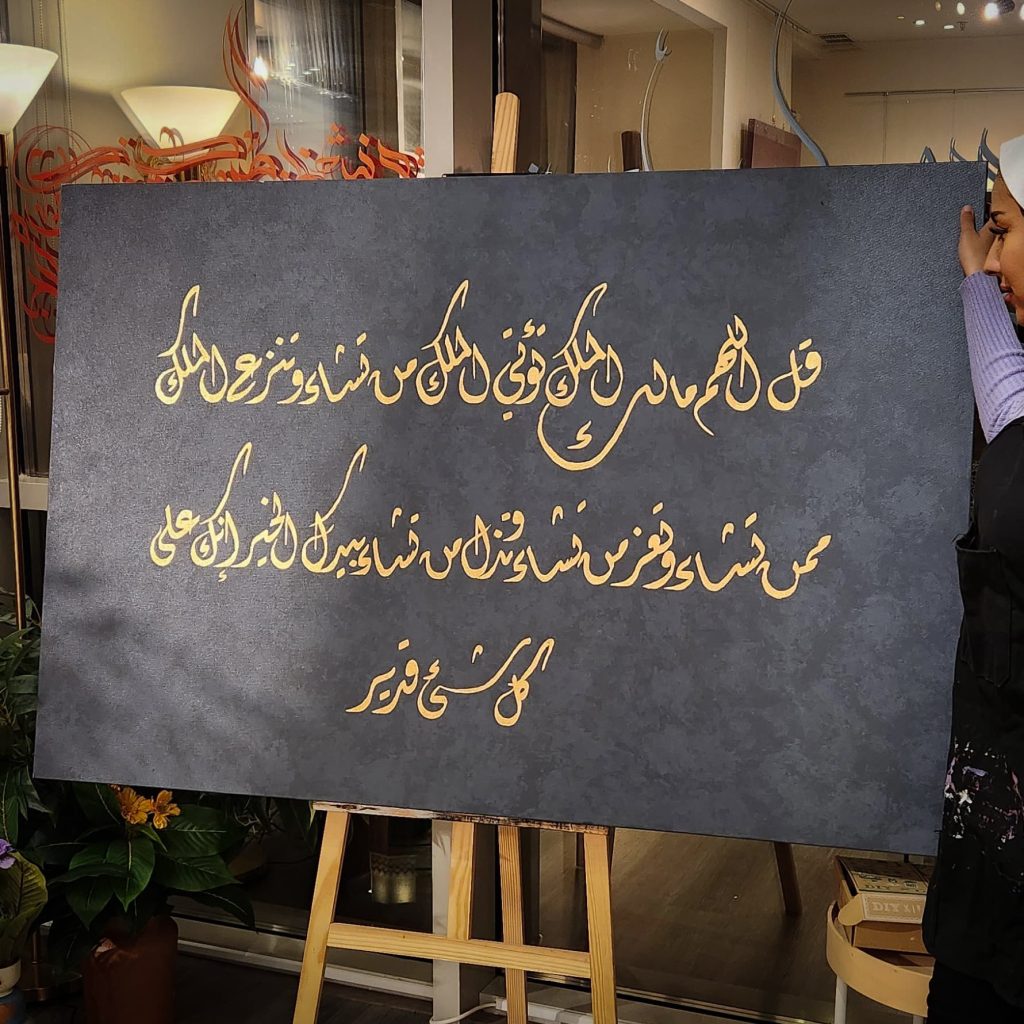 قل اللهم مالك الملك تؤتي الملك من تشاء وتنزع الملك
ممن تشاء وتعز من تشاء وتذل من تشاء بيدك الخير إنك على
كل شئ قدير
DIY